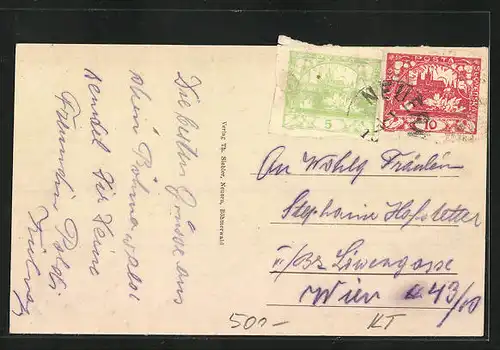 Die besten Grüsse aus
dem Böhmerwald
sendet Dir Deine
Freundin Poldi
Verlag Th. Stehler, Neuern, Böhmerwald
POSTA
5
10
NEUE
An Wohlg Fräulein
Stephanie Hofstetter
II/Bz Löwengasse
Wien 43/10
500-
KT